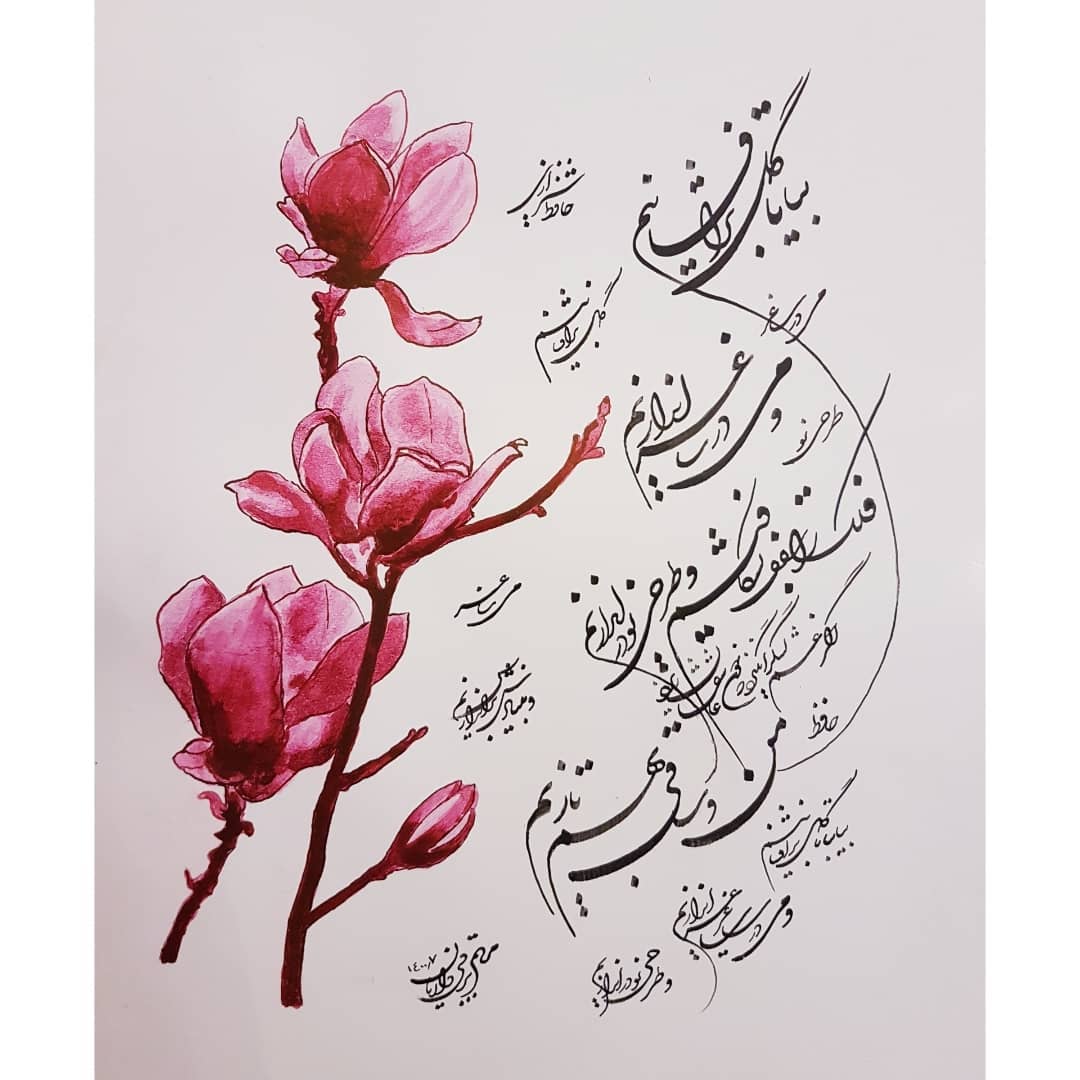 بیا تا گل برافشانیم
حافظ شیرازی
گل برافشانیم
می در ساغر
و می در ساغر اندازیم
طرحی نو
فلک را سقف بشکافیم و طرحی نو دراندازیم
اگر غم لشکر انگیزد که خون عاشقان ریزد
می ساغر
و بنیادش براندازیم
حافظ
من و ساقی بهم تازیم
بیا تا گل برافشانیم
و می در ساغر اندازیم
و طرحی نو دراندازیم
مریم
۱۴۰۰/۷